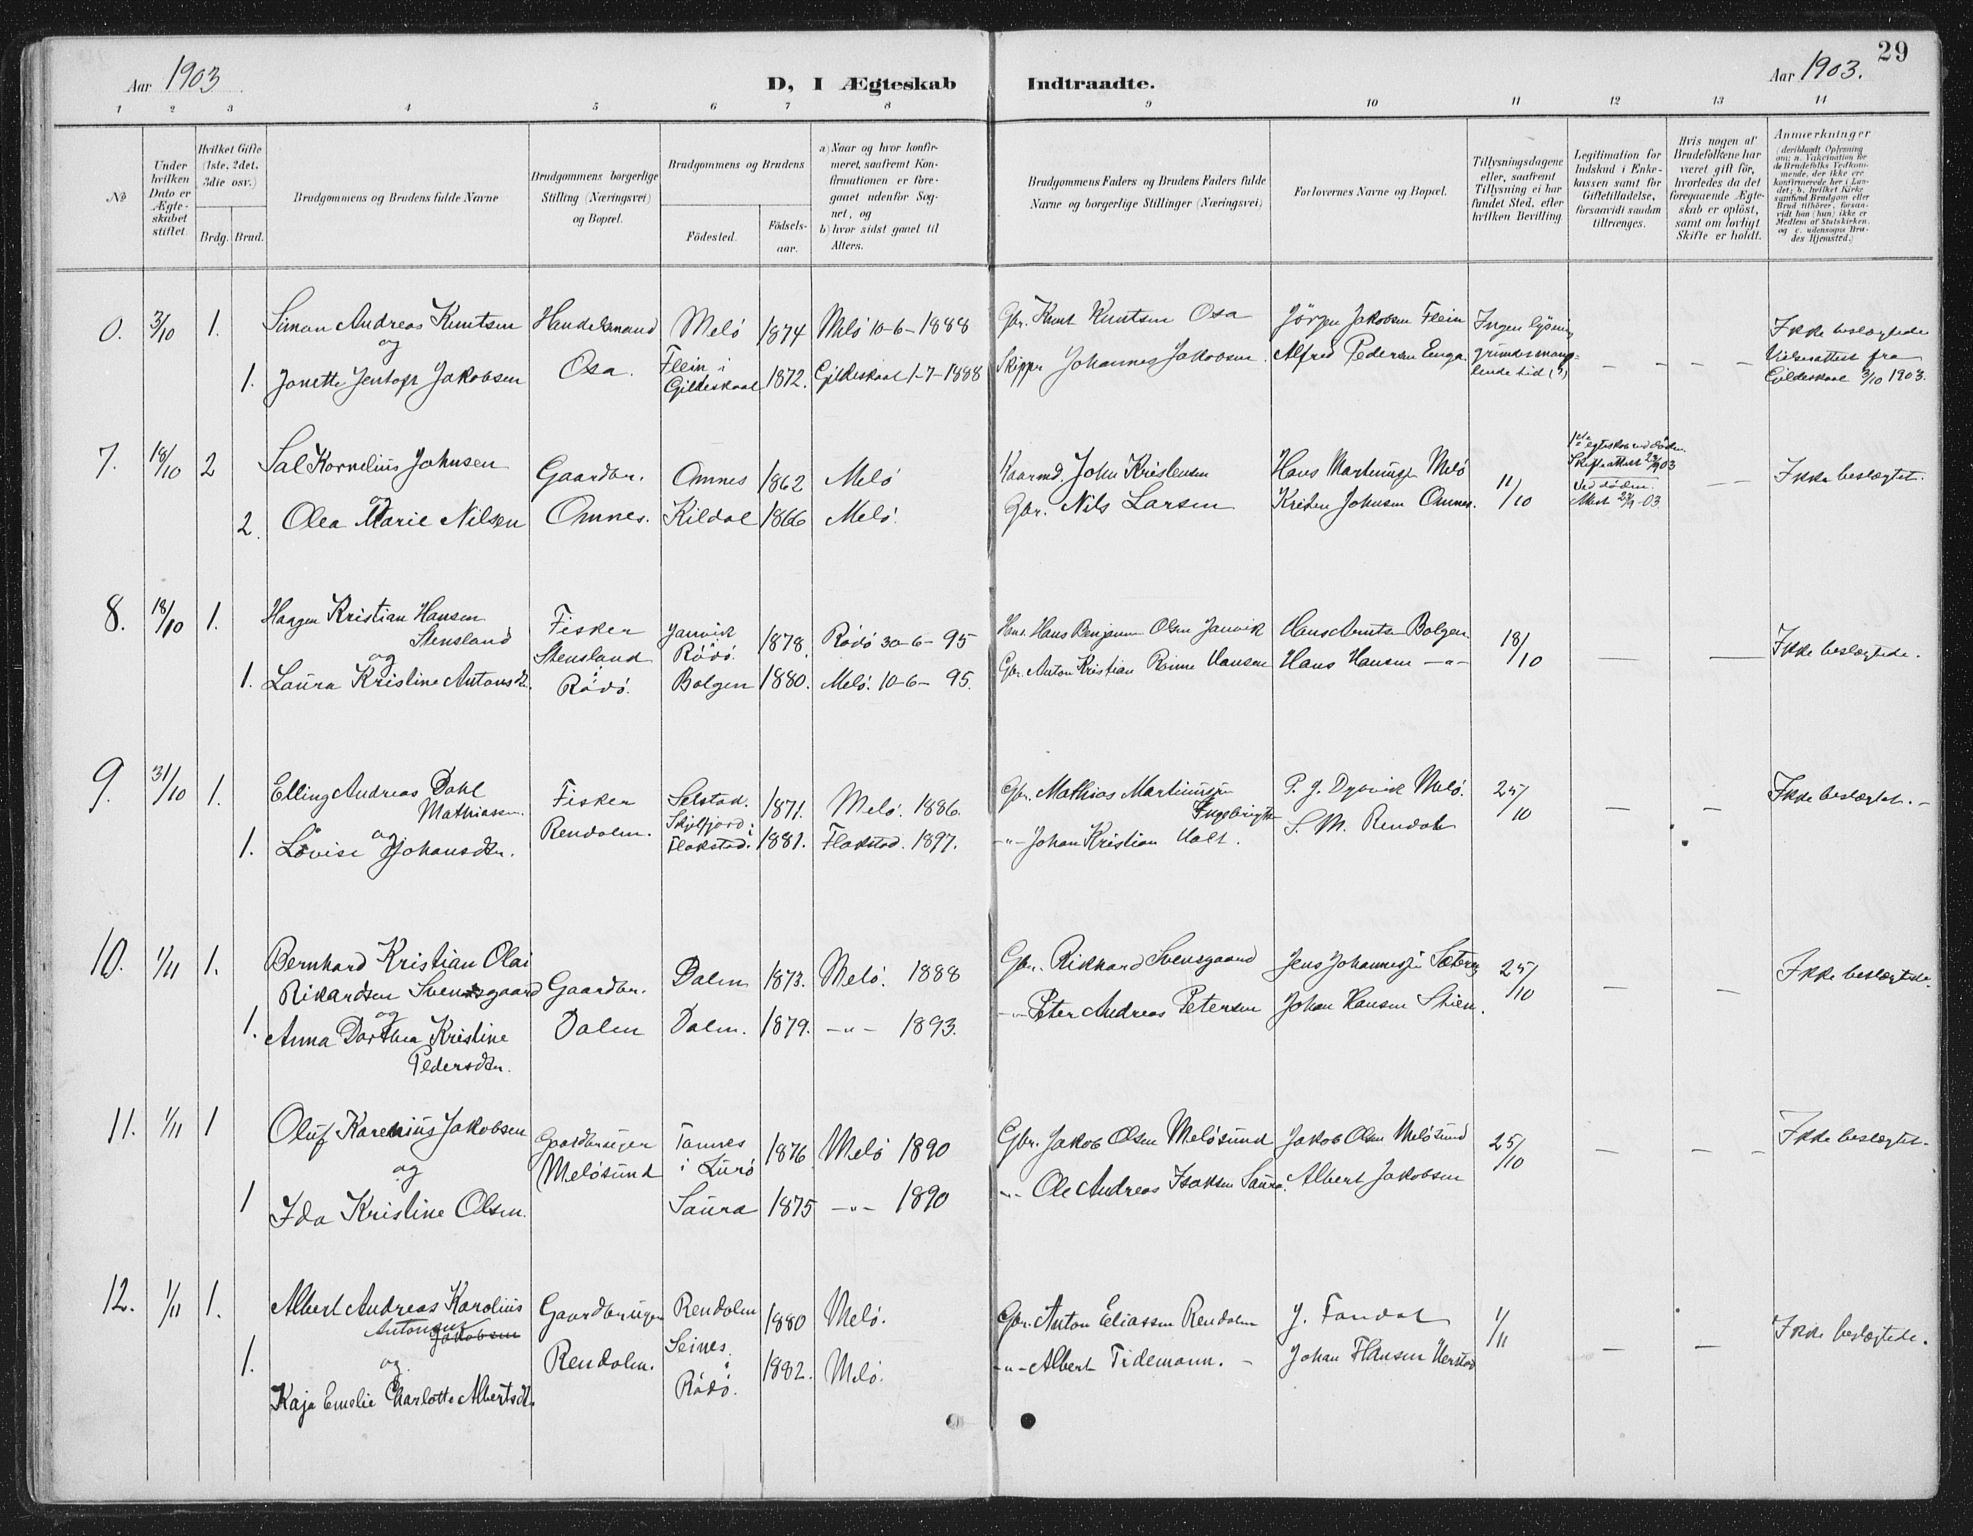 Aar 1903
D, I Ægteskab Indtraadte.
Aar 1903.
29
1 2 3 4 5 6 7 8 9 10 11 12 13 14
No
Under hvilken Dato er Ægteskabet stiftet.
Hvilket Gifte (1ste, 2det, 3die osv.)
Brdg. Brud.
Brudgommens og Brudens fulde Navne
Brudgommens borgerlige Stilling (Næringsvei) og Bopæl.
Brudgommens og Brudens
Födested. Födselsaar.
a) Naar og hvor konfirmeret, saafremt Konfirmationen er foregaaet udenfor Sognet, og
b) hvor sidst gaaet til Alters.
Brudgommens Faders og Brudens Faders fulde Navne og borgerlige Stillinger (Næringsvei)
Forlovernes Navne og Bopæl.
Tillysningsdagene eller, saafremt Tillysning ei har fundet Sted, efter hvilken Bevilling.
Legitimation for Indskud i Enkekassen samt for Giftetilladelse, forsaavidt saadan tiltrænges.
Hvis nogen af Brudefolkene har været gift för, hvorledes da det foregaaende Ægteskab er oplöst, samt om lovligt Skifte er holdt.
Anmerkninger
(deriblandt Oplysning om: a. Vakcination for de Brudefolks Vedkommende, der ikke ere konfirmerede her i Landet; b. hvilket Kirkesamfund Brudgom eller Brud tilhörer, forsaavidt han (hun) ikke er Medlem af Statskirken, og c. udensogns Brudes Hjemsted.)
0. 3/10 1. Simon Andreas Knutsen Handelsmand Melö 1874 Melö 10-6-1888 Gbr. Knut Knutsen Osa Jörgen Jakobsen Flein Ingen lysning Ikke beslægtede
og Osa. Flein i grundet mang- Vielsesattest fra
1. Janette Jentoft Jakobsen Gildeskaal 1872. Gildeskaal 1-7-1888 Skipper Johannes Jakobsen Alfred Pedersen Enga. lende tid — — — Gildeskaal 3/10 1903.
7. 18/10 2 Sal Kornelius Johnsen Gaardbr. Omnes 1862 Melö Kaarmd. John Kristensen Hans Martinussen Melö 11/10 1ste egteskab ved döden. Skifteattest 23/9 03 — — Ikke beslægtet.
og
2. Olea Marie Nilsen Omnes. Kildal 1866 Melö. Gbr. Nils Larsen Kristen Johnsen Omnes. Ved döden. Attest -03.
8. 18/10 1. Haagen Kristian Hansen Stensland Fisker Janvik Rödö. 1878. Rödö 30-6-95 Hans Benjamin Olsen Janvik Hans Arntsen Bolgen 18/10 — — Ikke beslægtede.
og Stensland
1. Laura Kristine Antonsdtr. Rödö. Bolgen 1880. Melö. 10-6-95. Gbr. Anton Kristian Rinne Hansen Hans Hansen —„—
9. 31/10 1. Elling Andreas Dahl Mathiassen Fisker Selstad. 1871. Melö. 1886. Gbr. Mathias Martinussen Ingebrigts P. J. Dyrvik Melö. 25/10 — — Ikke beslægtet.—
og Rendalen. Skjelfjord i
1. Lovise Johansdtr. Flakstad. 1881. Flakstad. 1897. —„— Johan Kristian Holt. S. M. Rendal
10. 1/11 1. Bernhard Kristian Olai Rikardsen Svensgaard Gaardbr. Dalen 1873. Melö. 1888 Gbr. Rikhard Svensgaard Jens Johannessen Sæteren 25/10 — — Ikke beslægtede.
og
1. Anna Dorthea Kristine Pedersdtr. Dalen Dalen. 1879. —„— 1893. —„— Peter Andreas Petersen Johan Hansen Stien.
11. 1/11 1 Oluf Karenius Jakobsen Gaardbruger Tonnes i Lurö 1876 Melö 1890 Gbr. Jakob Olsen Melösund Jakob Olsen Melösund 25/10 — — — Ikke beslægtet.
og Melösund
1 Ida Kristine Olsen. Saura 1875 —„— 1890 —„— Ole Andreas Isaksen Saura. Albert Jakobsen
12. 1/11 1. Albert Andreas Karolius Antonsen Jakobsen Gaardbruger Rendalen 1880 Melö. Gbr. Anton Eliassen Rendalen J. Fondal 1/11 — — Ikke beslægtede.
og Rendalen. Seines i
1. Kaja Emelie Charlotte Albertsdtr. Rödö. 1882. Melö. —„— Albert Tidemann. — Johan Hansen